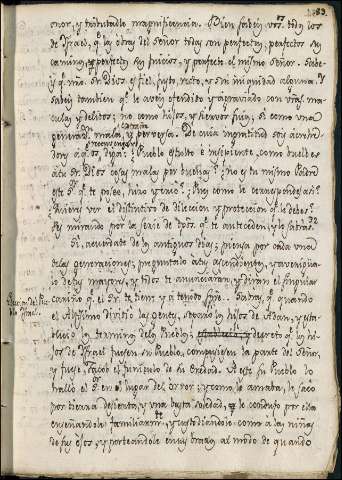 183.
mor, y tributadle magnificencia. Bien sabeis vos. todos los
de Israel, q. las obras del Señor todas son perfectas, perfectos sus
caminos, y perfectos sus juicios, y perfecto el mismo Señor. Sabe-
is q. nro. Sr. Dios es fiel, justo, recto, y sin iniquidad alguna. Y
sabeis tambien q. le aveis ofendido y agraviado con vras. ma-
culas y delitos; no como hijos, y siervos suyos, si como una
generacion mala, y perversa. De cuia ingratitud soy acreedor
a q. os diga: Pueblo estulto e insipiente, como buelbes
a tu Sr. Dios cosas malas por buenas? no es tu mismo Padre
este Sr. q. te posee, hizo y crio? Pues como le correspondes asi?
Quieres ver el distintivo de dileccion y proteccion q. le debes?
Ves mirando por la serie de tpos. q. te antecedens, y lo sabras.
32
Si, acuerdate de los antiguos dias; piensa por cada una
de las generaciones; preguntalo a tus ascendientes, y averigua-
lo de tus mayores, y todos te anunciaran, y diran el singular
cariño q. el Sr. te tiene, y a tenido spre. Sabras q. quando
el Altissimo dividio las gentes, separó los hijos de Adan, y esta-
blecio los terminos de los Pueblos; y decretó q. los hi-
jos de Israel fuesen su Pueblo, compusiesen la parte del Señor,
y fuese Jacob el funiculo de su eredad. A este su Pueblo lo
halló el Sr. en el lugar del orror; y como lo amaba, lo sacó
por tierra desierta, y una basta soledad, lo conduxo por ella
enseñandole familiarmte., y custodiandole como a las niñas
de sus ojos, y porteandole en sus brazos al modo de quando